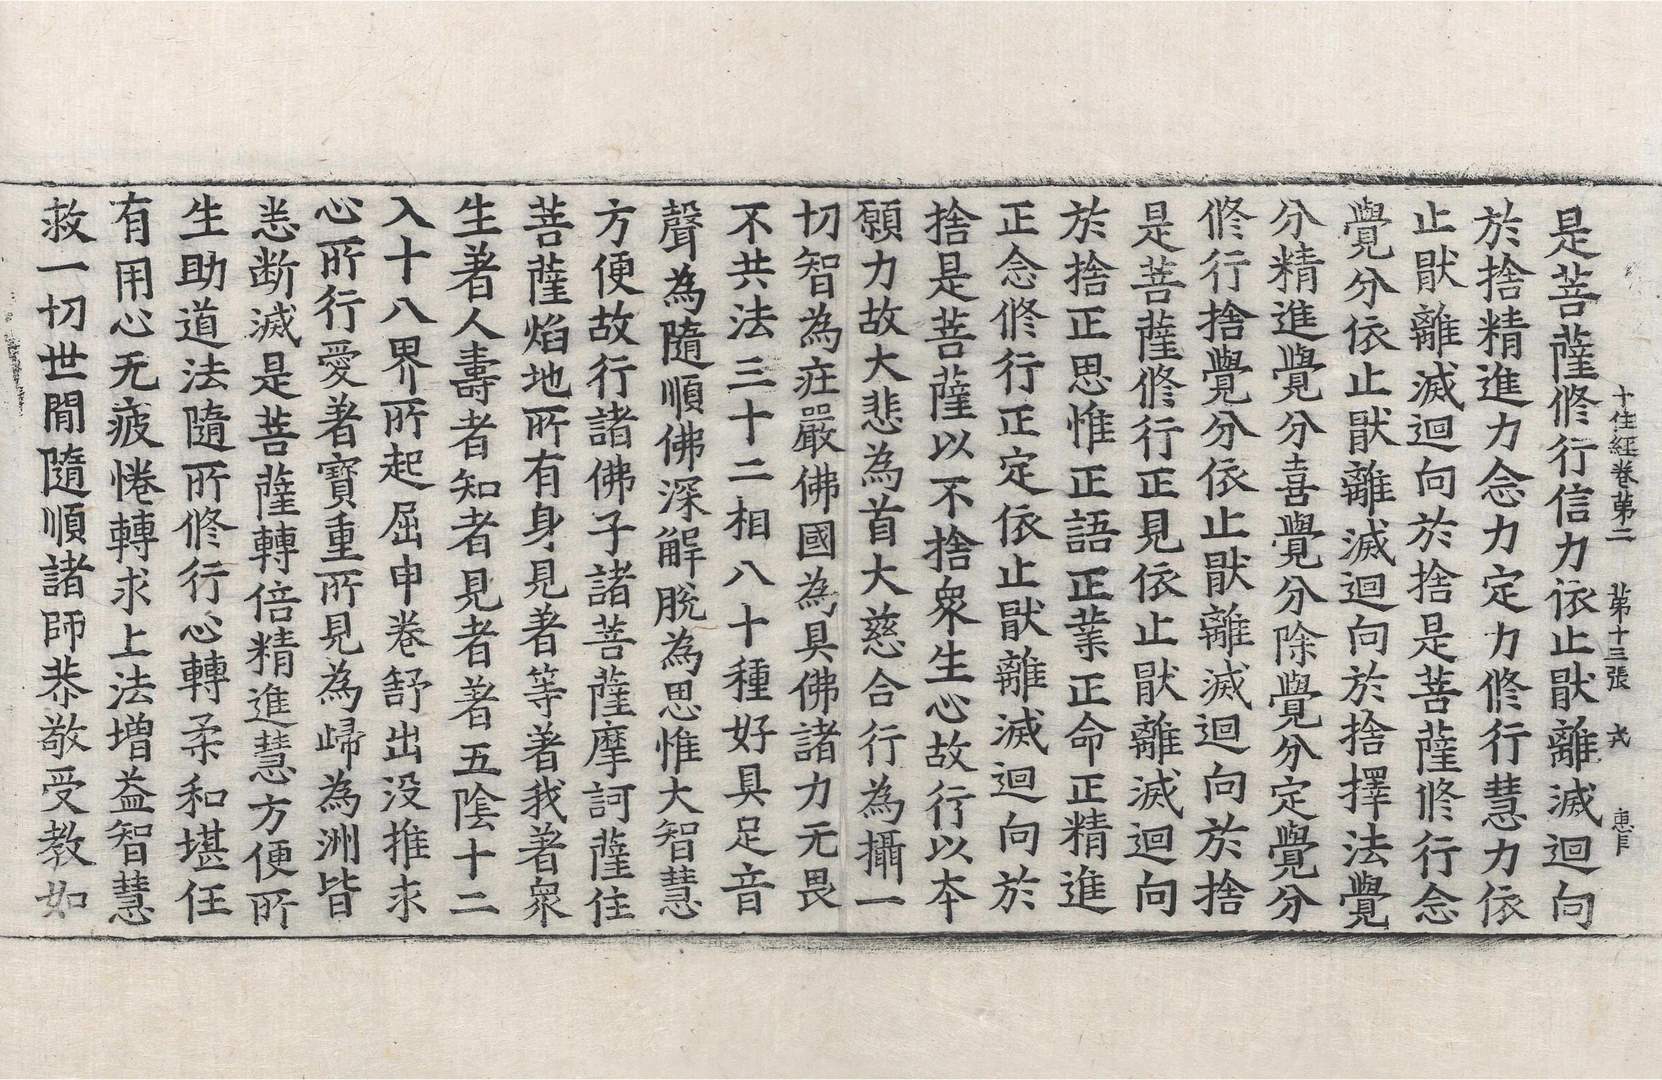 十住經卷第二 第十三張 戎
是菩薩修行信力依止猒離滅迴向
於捨精進力念力定力修行慧力依
止猒離滅迴向於捨是菩薩修行念
覺分依止猒離滅迴向於捨擇法覺
分精進覺分喜覺分除覺分定覺分
修行捨覺分依止猒離滅迴向於捨
是菩薩修行正見依止猒離滅迴向
於捨正思惟正語正業正命正精進
正念修行正定依止猒離滅迴向於
捨是菩薩以不捨衆生心故行以本
願力故大悲為首大慈合行為攝一
切智為莊嚴佛國為具佛諸力无畏
不共法三十二相八十種好具足音
聲為隨順佛深解脫為思惟大智慧
方便故行諸佛子諸菩薩摩訶薩住
菩薩焰地所有身見著等著我著衆
生著人壽者知者見者著五陰十二
入十八界所起屈申卷舒出没推求
心所行愛著寶重所見為歸為洲皆
悉断滅是菩薩轉倍精進慧方便所
生助道法隨所修行心轉柔和堪任
有用心无疲惓轉求上法增益智慧
救一切世間隨順諸師恭敬受教如